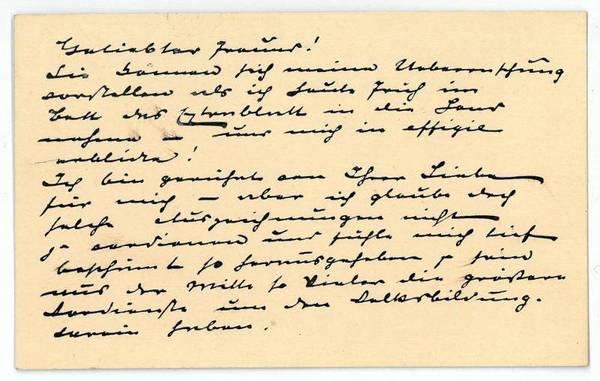 Geliebter Freund!
Sie können sich meine Ueberraschung
vorstellen als ich heute früh im
Bett das Extrablatt in die Hand
nahm — und mich in effigie
erblickte!
Ich bin gerührt von Ihrer Liebe
für mich — aber ich glaube doch
solche Auszeichnungen nicht
zu verdienen und fühle mich tief
beschämt so herausgehoben zu sein
aus der Mitte so Vieler die grössere
Verdienste um den Volksbildungs-
verein haben.